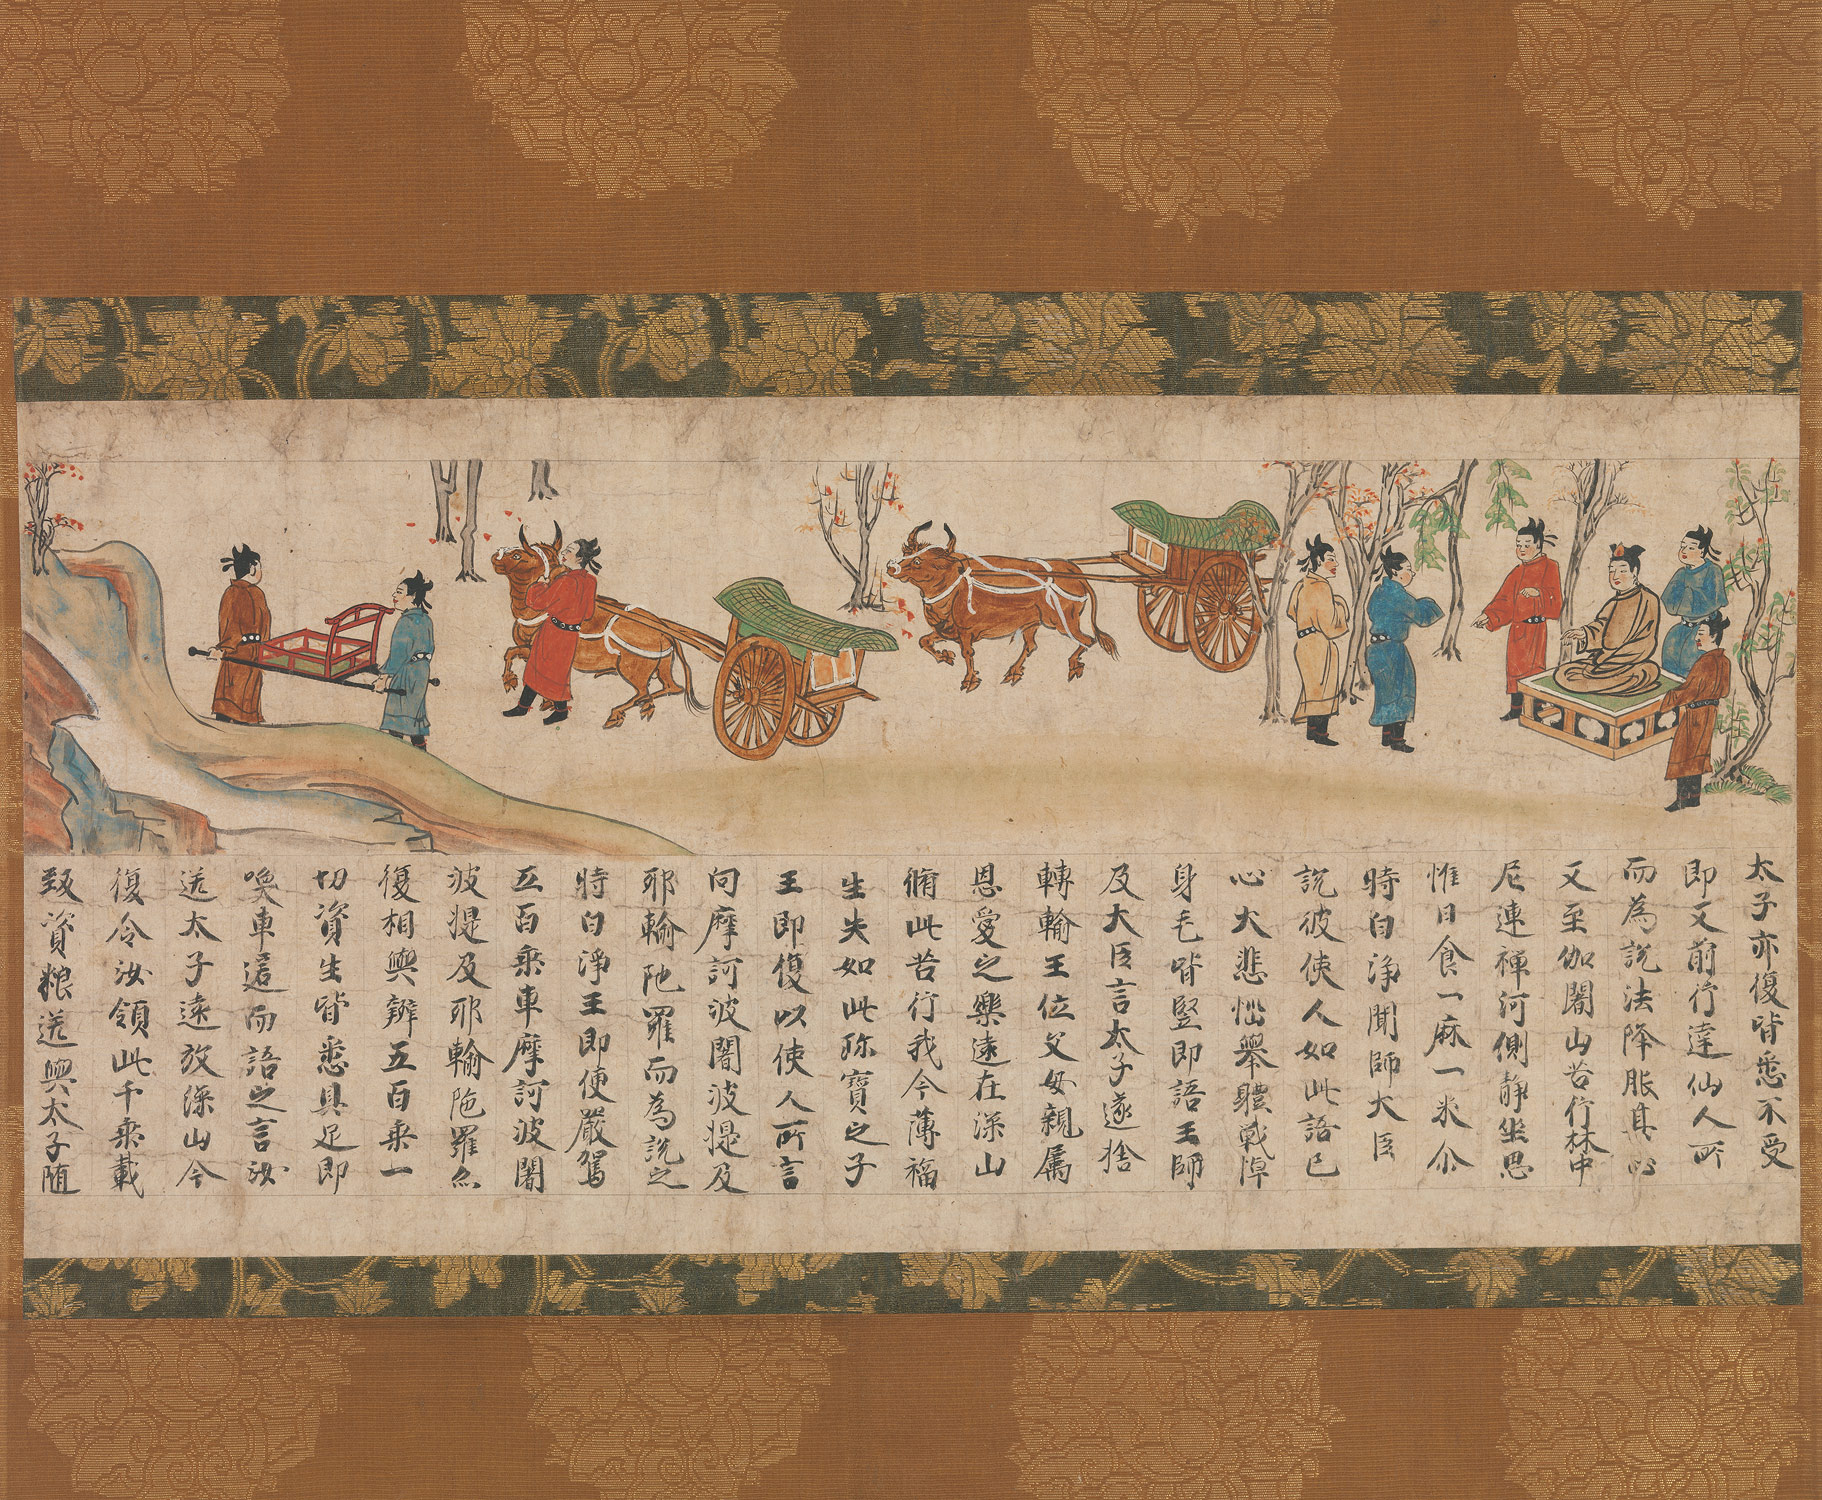 太子亦復皆悉不受
即又前行達仙人所
而為說法降胀其心
又至伽闍山苦行林中
尼連禪河側靜坐思
惟日食一麻一米尒
時白淨聞師大臣
說彼使人如此語已
心大悲惱舉體戰悼
身毛皆竪即語王師
及大臣言太子遂捨
轉輪王位父母親屬
恩愛之樂遠在深山
脩此苦行我今薄福
生失如此珎寶之子
王即復以使人所言
向摩訶波闍波提及
耶輪陁羅而為說之
時白淨王即使嚴駕
五百乘車摩訶波闍
波提及耶輪陁羅尒
復相與辦五百乘一
切資生皆悉具足即
喚車匿而語之言汝
送太子遠放深山今
復令汝領此千乘載
致資粮送與太子随